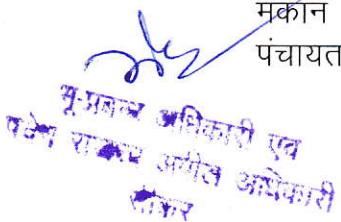 मकान
पंचायत
भू-प्रबन्ध अधिकारी एवं
पदेन राजस्व अपील अधिकारी
सीकर